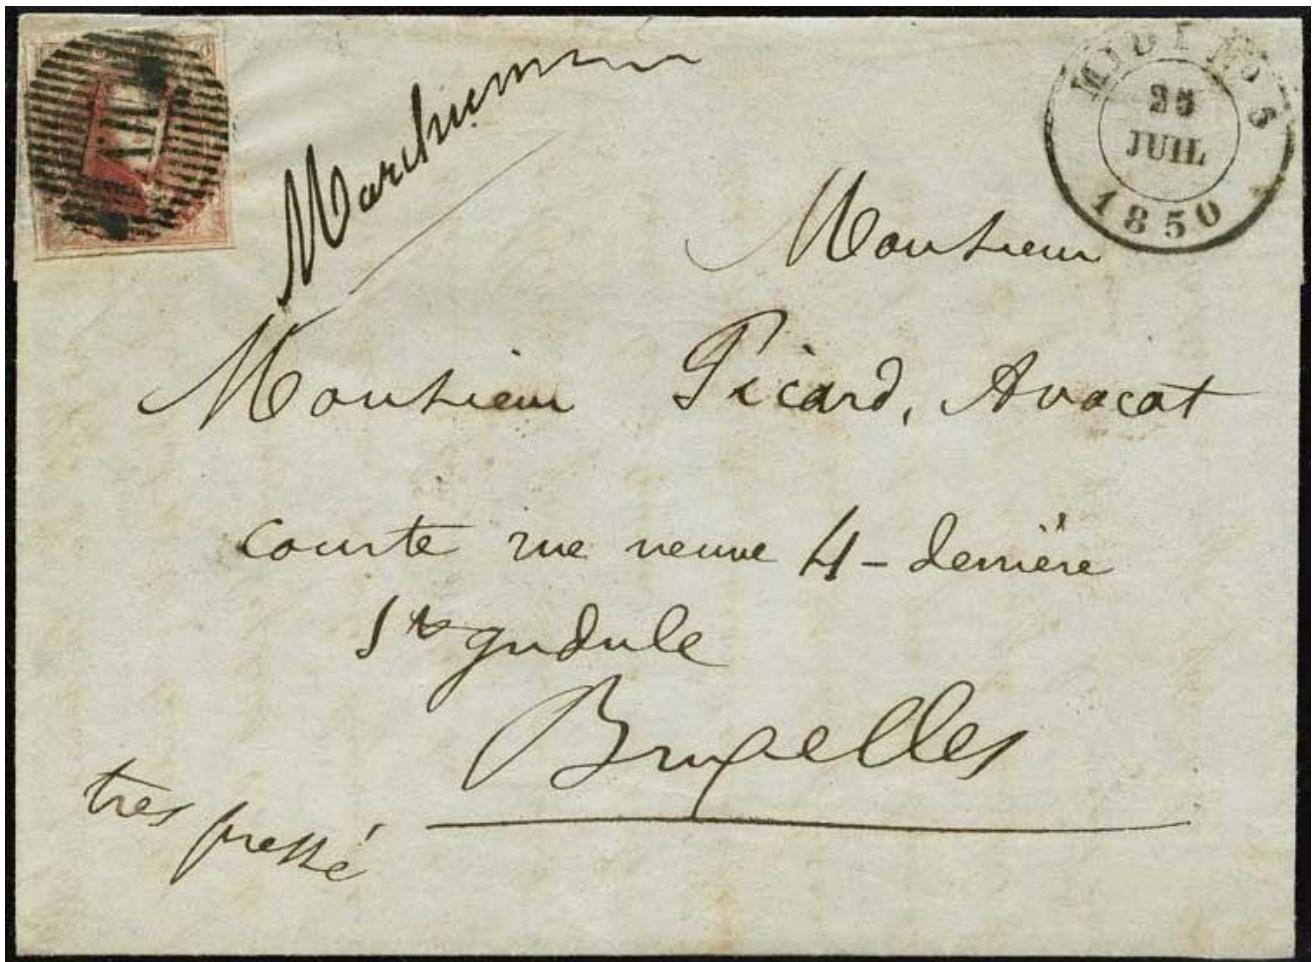 MIDI No 5
25
JUIL
1850
Monsieur
Monsieur Picard, Avocat
courte rue neuve 4 - derrière
Ste gudule
Bruxelles
tres pressé